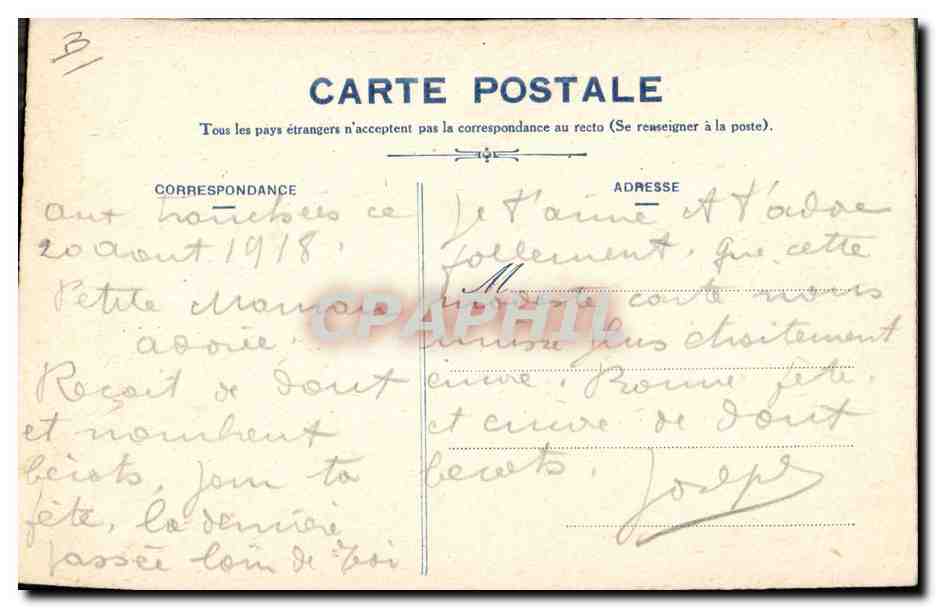 B
CARTE POSTALE
Tous les pays étrangers n'acceptent pas la correspondance au recto (Se renseigner à la poste).
CORRESPONDANCE
aux tranchées ce
20 aout 1918.
Petite Maman
adorée.
Reçoit de dout
et nombreut
becots, pour ta
fête, la derniere
passée loin de Toi
ADRESSE
Je t'aime et t'adore
follement. que cette
M
modeste carte nous
unisse plus etroitement
encore. Bonne fête.
et encore de dout
becots.
Joseph
CPAPHIL